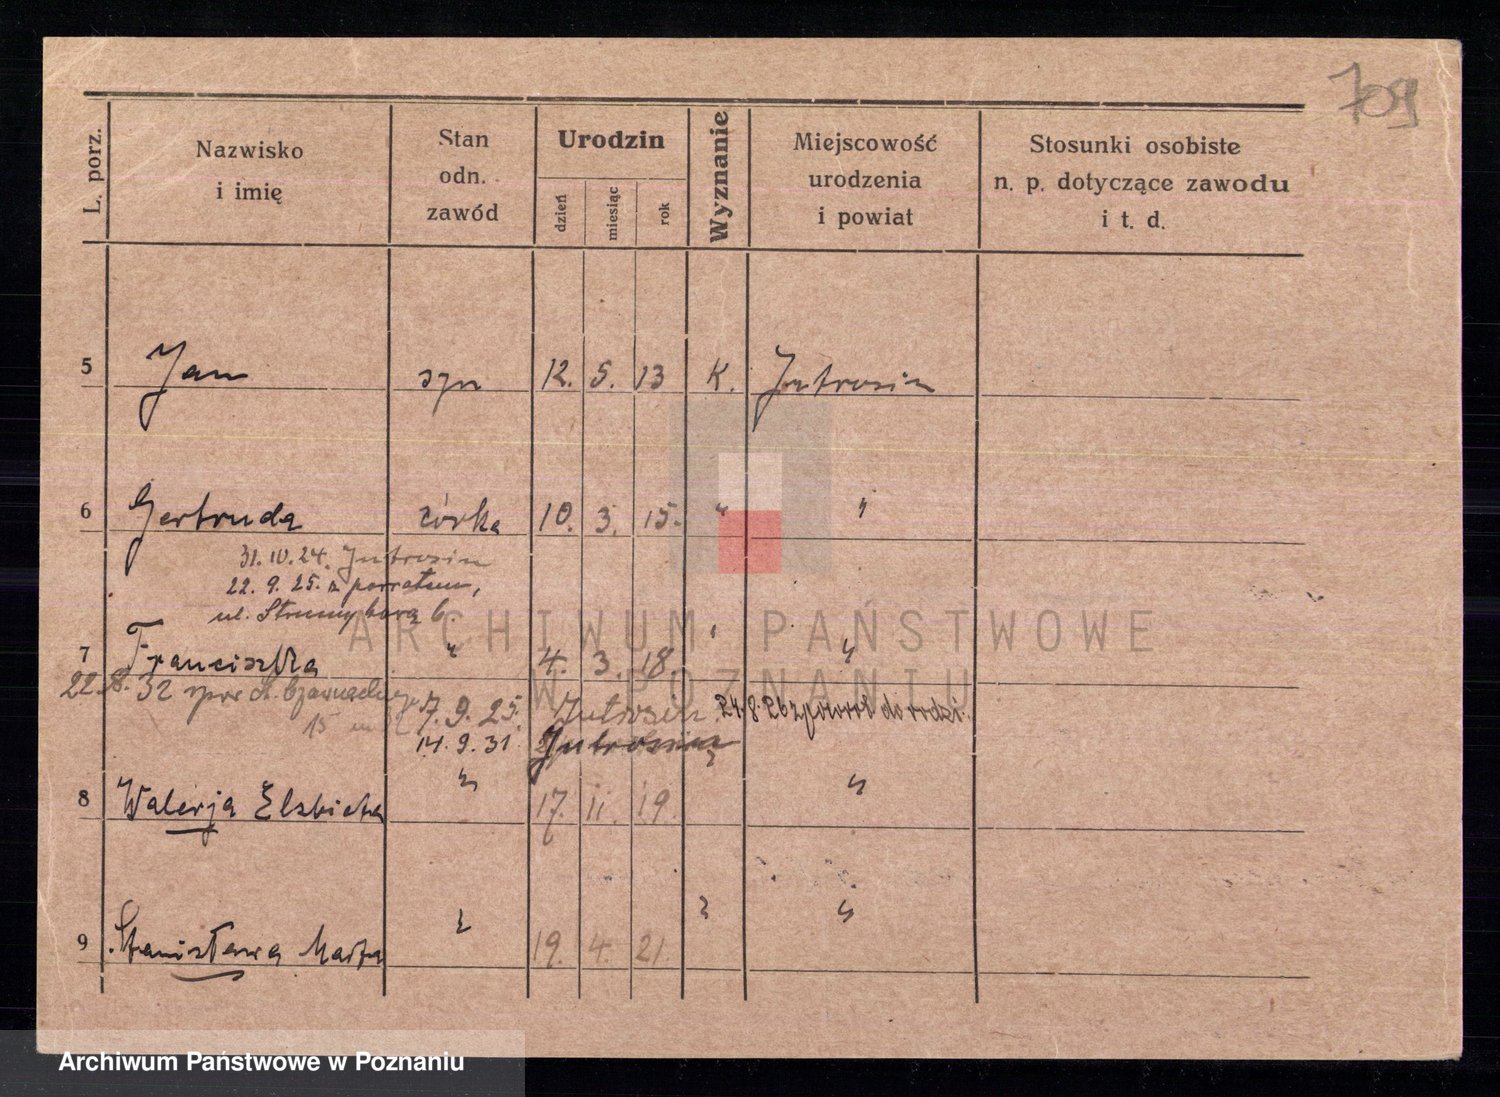 709
L. porz.
Nazwisko
i imię
Stan
odn.
zawód
Urodzin
dzień
miesiąc
rok
Wyznanie
Miejscowość
urodzenia
i powiat
Stosunki osobiste
n. p. dotyczące zawodu
i t. d.
5 Jan syn 12. 5. 13 K. Jutrosin
6 Gertruda córka 10. 3. 15. " "
31.10.24. Jutrosin
22. 9. 25. z powrotem,
ul. 6.
7 Franciszka " 4. 3. 18. " "
22.8.32
15
7. 9. 25. Jutrosin 24.8.26 z powrot do rodzi.
14. 9. 31 Jutrosin
8 Walerja Elzbieta " 17. 11. 19. " "
9 Stanisława Marta " 19. 4. 21. " "
ARCHIWUM PAŃSTWOWE
W POZNANIU
Archiwum Państwowe w Poznaniu